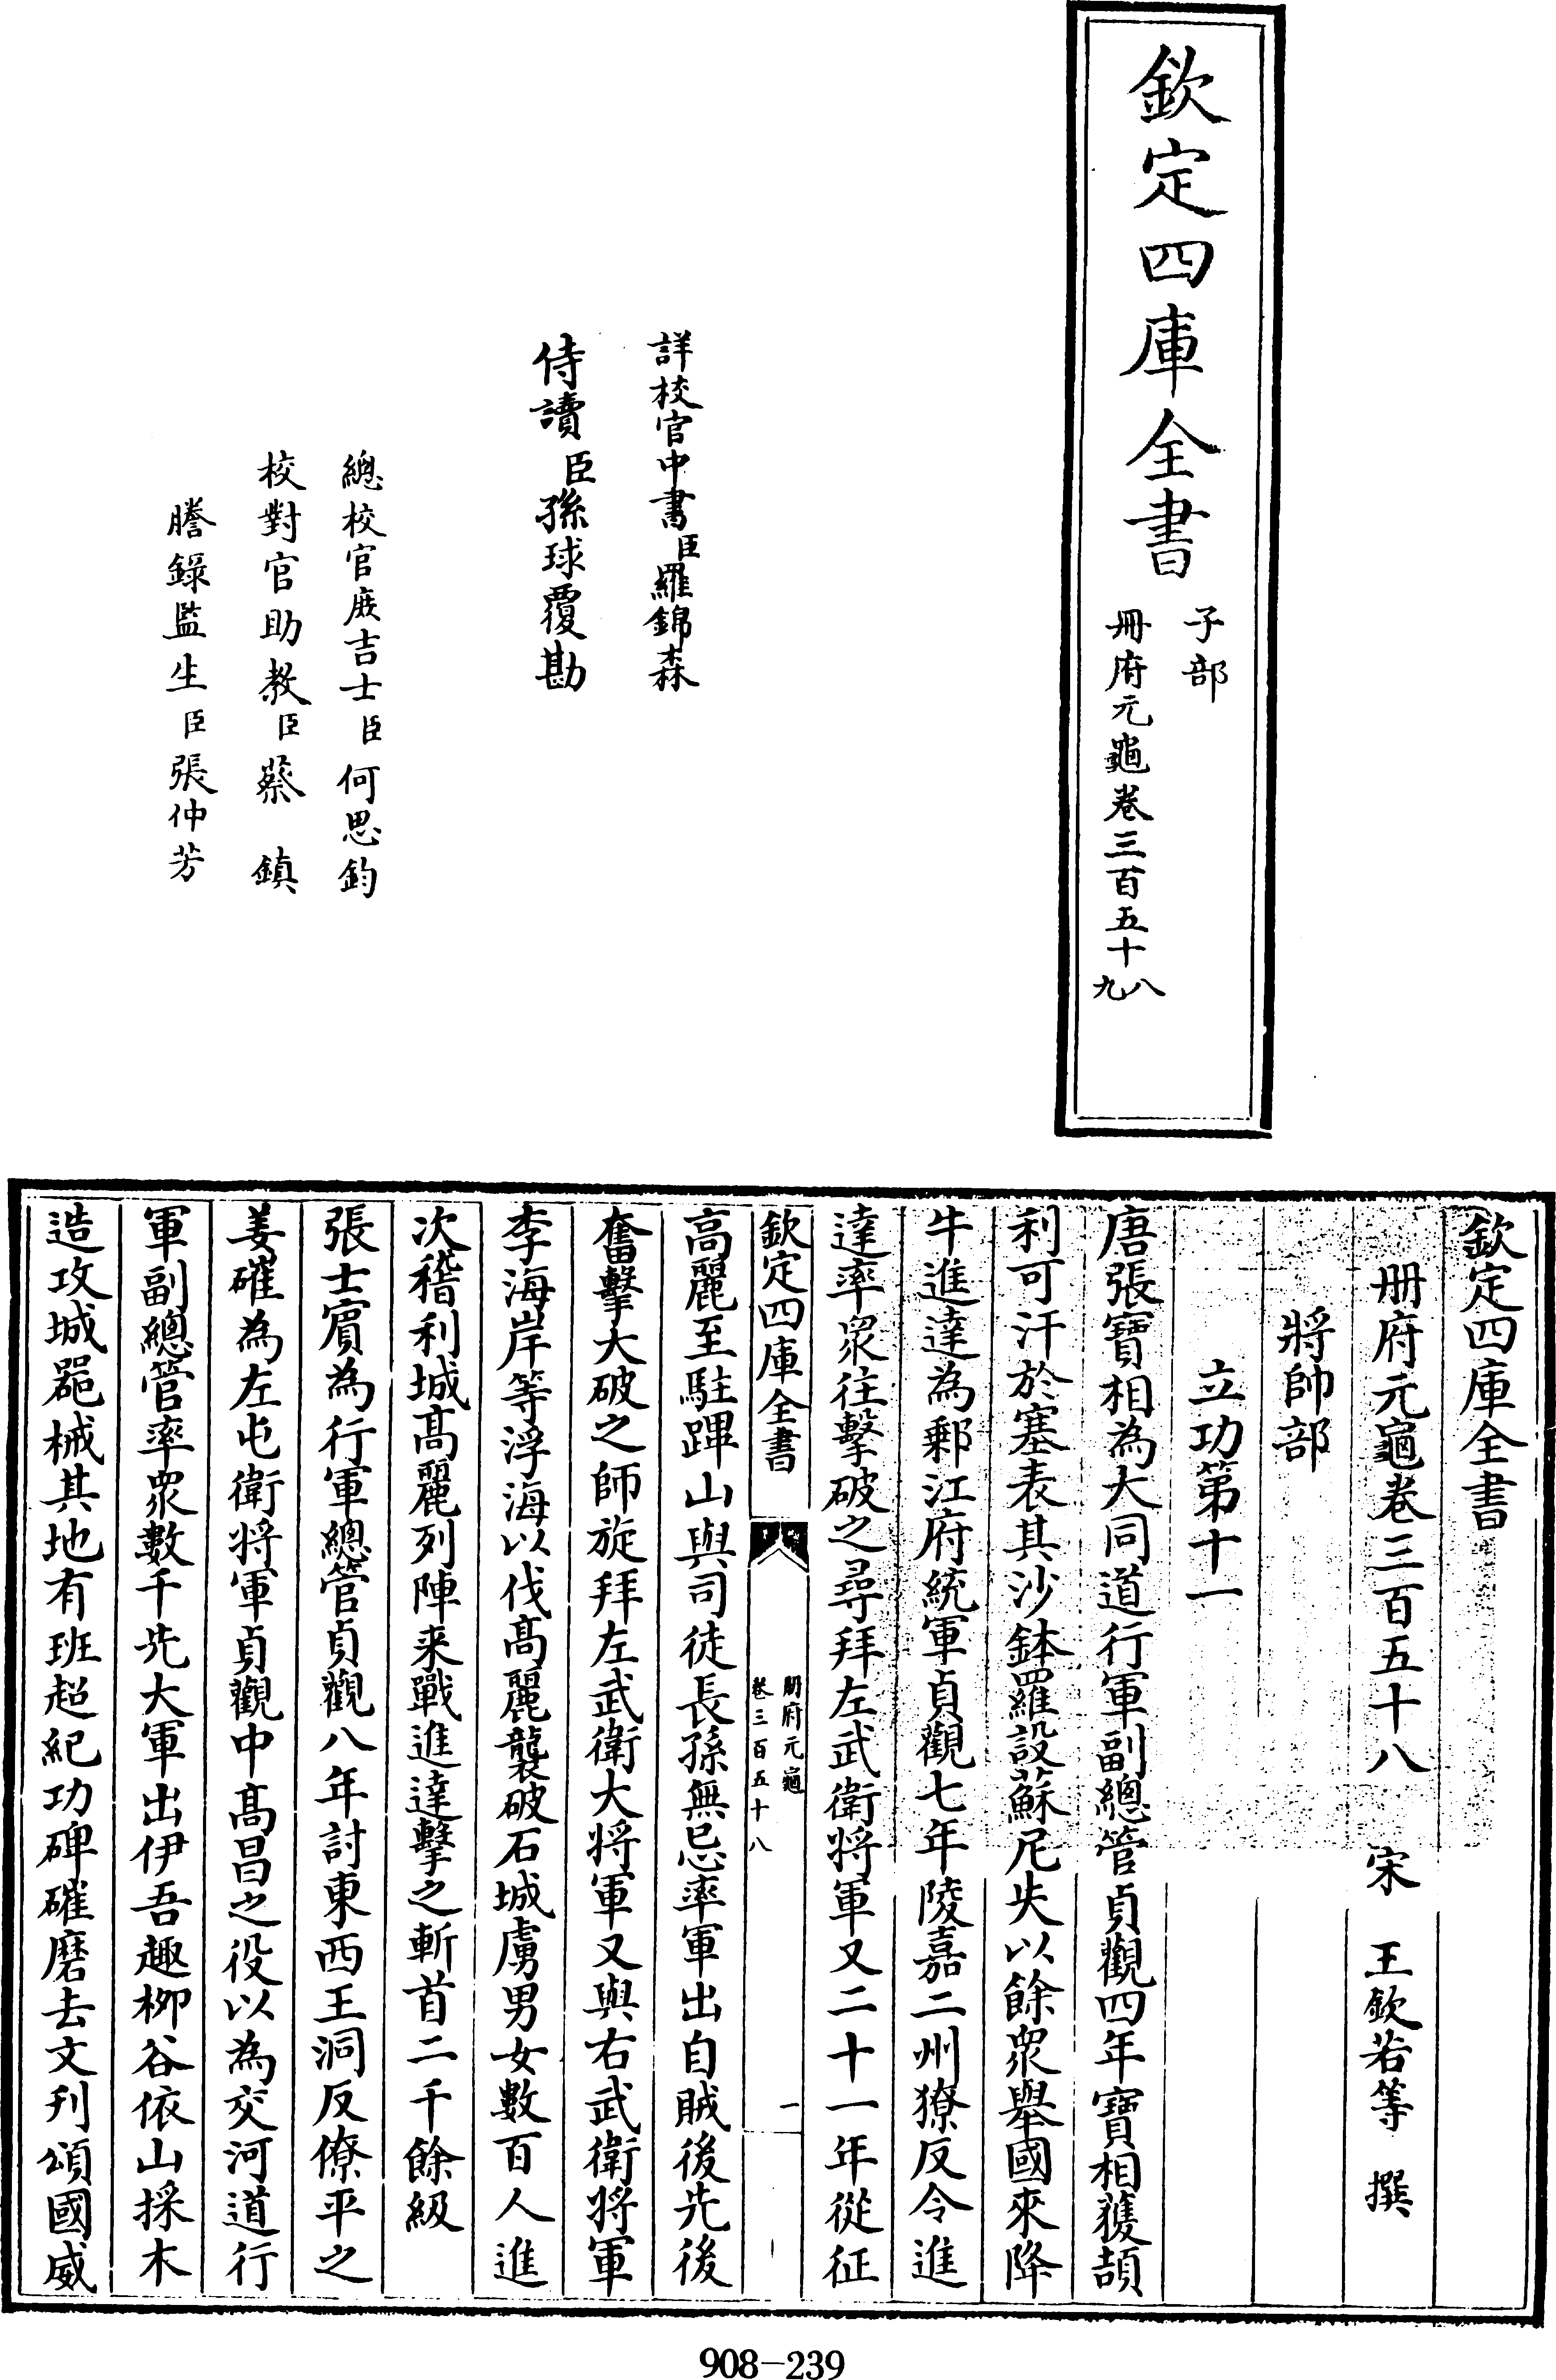 欽定四庫全書
子部
冊府元龜卷三百五十八九
詳校官中書臣羅錦森
侍讀臣孫球覆勘
總校官庶吉士臣何思鈞
校對官助教臣蔡鎮
謄錄監生臣張仲芳
欽定四庫全書
冊府元龜卷三百五十八 宋 王欽若等 撰
將帥部
立功第十一
唐張寶相為大同道行軍副總管貞觀四年寶相獲頡
利可汗於塞表其沙鉢羅設蘇尼失以餘衆舉國來降
牛進達為郪江府統軍貞觀七年陵嘉二州獠反令進
達率衆往擊破之尋拜左武衛将軍又二十一年從征
欽定四庫全書
冊府元龜
卷三百五十八
一
高麗至駐蹕山與司徒長孫無忌率軍出自賊後先後
奮擊大破之師旋拜左武衛大将軍又與右武衛将軍
李海岸等浮海以伐髙麗襲破石城虜男女數百人進
次稽利城髙麗列陣来戰進達擊之斬首二千餘級
張士賔為行軍總管貞觀八年討東西王洞反僚平之
姜確為左屯衛将軍貞觀中髙昌之役以為交河道行
軍副總管率衆數千先大軍出伊吾趣栁谷依山採木
造攻城噐械其地有班超紀功碑確磨去文刋頌國威
908-239